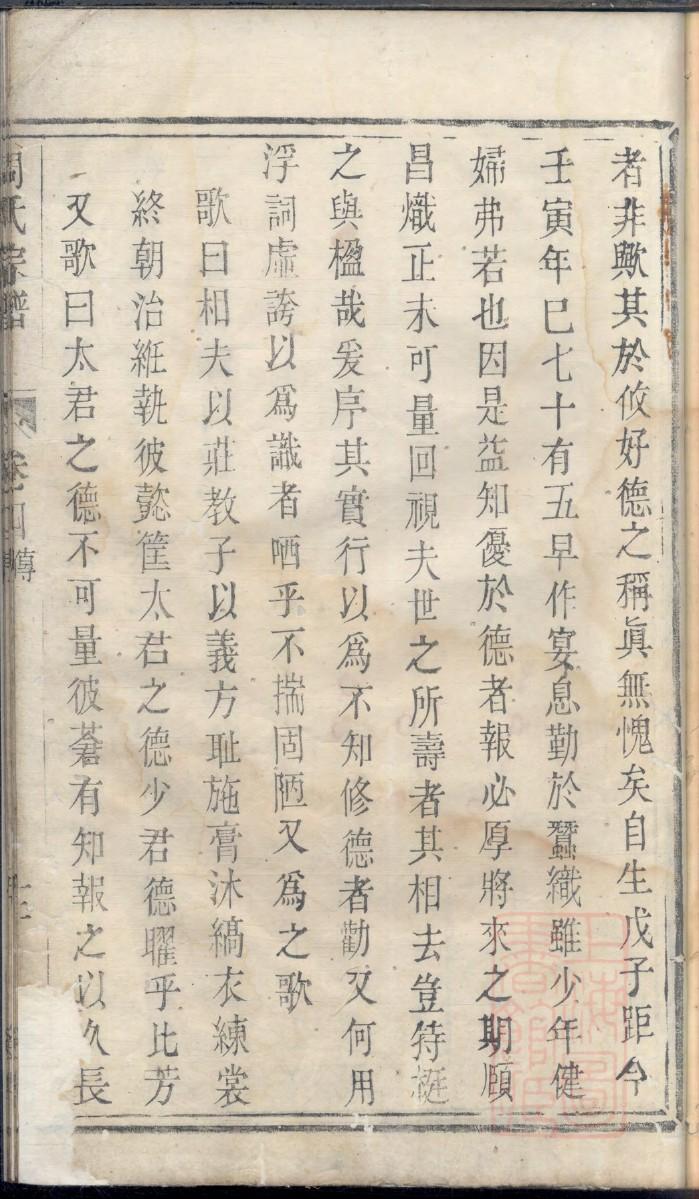 者非歟其於攸好德之稱眞無愧矣自生戊子距今
壬寅年巳七十有五早作宴息勤於蠶織雖少年健
婦弗若也因是益知優於德者報必厚將來之期頤
昌熾正未可量回視夫世之所壽者其相去豈特梃
之與楹哉爰序其實行以爲不知修德者勸又何用
浮詞虛誇以爲識者哂乎不揣固陋又爲之歌
歌曰相夫以莊教子以義方恥施膏沐縞衣練裳
終朝治絍執彼懿筐太君之德少君德曜乎比芳
又歌曰太君之德不可量彼蒼有知報之以久長
周氏宗譜
卷四
傳